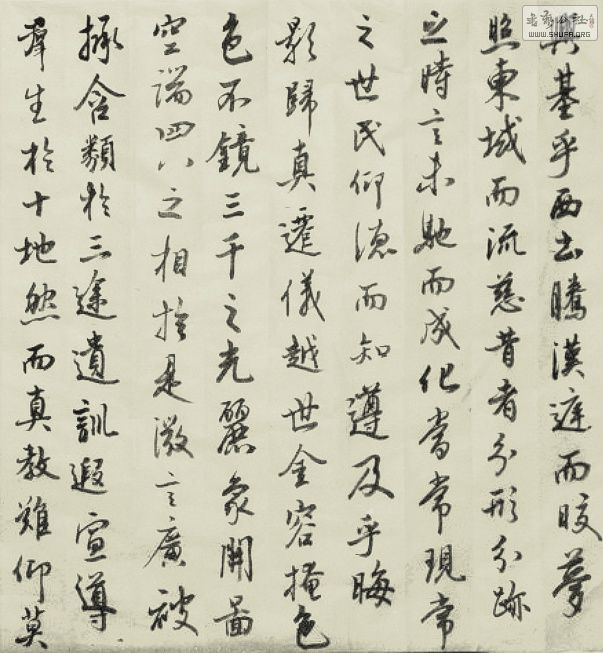 興基乎西土騰漢庭而皎夢
照東域而流慈昔者分形分跡
之時言未馳而成化當常現常
之世民仰德而知遵及乎晦
影歸真遷儀越世金容掩色
色不鏡三千之光麗象開圖
空端四八之相於是微言廣被
拯含類於三途遺訓遐宣導
羣生於十地然而真教難仰莫
WWW.SHUFA.ORG